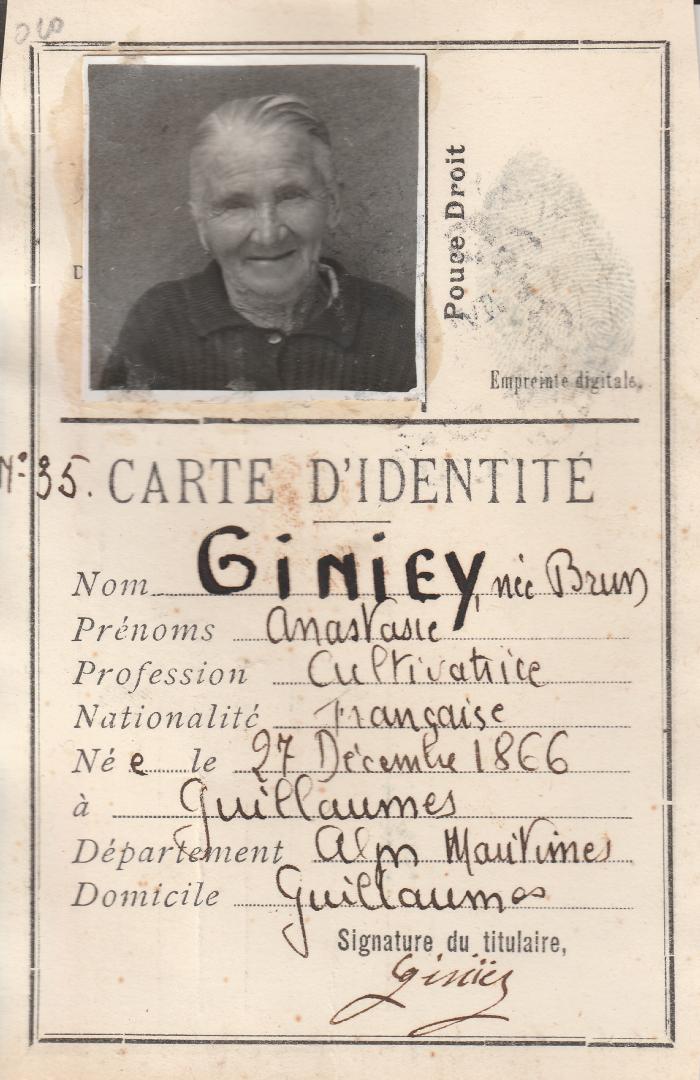 Pouce Droit
Empreinte digitale.
N° 35. CARTE D'IDENTITÉ
Nom GiNiEY, née Brun
Prénoms Anastasie
Profession Cultivatrice
Nationalité Française
Né e le 27 Décembre 1866
à Guillaumes
Département Alpes Maritimes
Domicile Guillaumes
Signature du titulaire,
Giniey